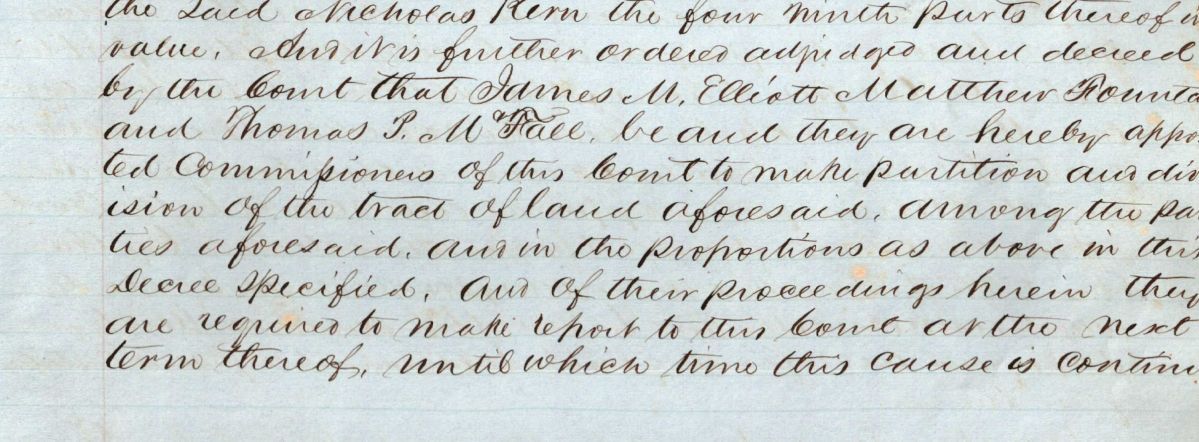 the Said Nicholas Kern the four ninth parts thereof in
value. And it is further ordered adjudged and decreed
by the Court that James M. Elliott Matthew Founta
and Thomas P. M Fall. be and they are hereby appoi
ted Commissioners of this Court to make partition and div
ision of the tract of land aforesaid. among the par
ties aforesaid. and in the proportions as above in this
Decree Specified. And of their proceedings herein they
are required to make report to this Court at the next
term thereof, until which time this cause is continu